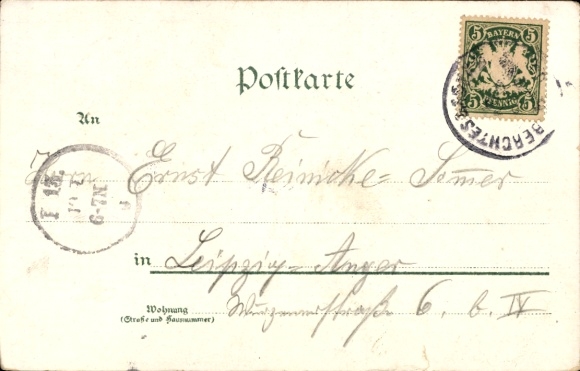 5 BAYERN 5
5 PFENNIG 5
BERCHTES
Postkarte
An
Herrn Ernst Reinicke-Somer
6-7N
in Leipzig-Anger
Wohnung
(Straße und Hausnummer)
Wurzenerstraße 6. b. IV